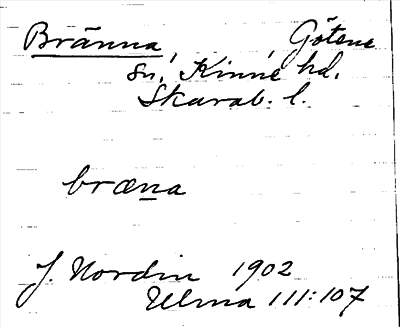 Bränna, Götene
sn, Kinne hd.
Skarab. l.
bræna
J. Nordin 1902
Ulma 111:107